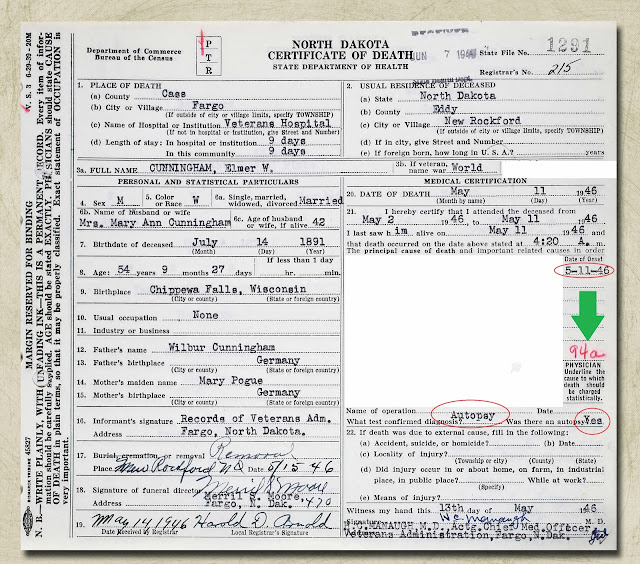 Department of Commerce
Bureau of the Census
P
T
R
NORTH DAKOTA
CERTIFICATE OF DEATH
STATE DEPARTMENT OF HEALTH
JUN 7 1946
State File No. 1291
Registrar's No. 215
V. S. 3 6-29-39-20M
MARGIN RESERVED FOR BINDING
N. B.—WRITE PLAINLY, WITH UNFADING INK—THIS IS A PERMANENT RECORD. Every item of information should be carefully supplied. AGE should be stated EXACTLY. PHYSICIANS should state CAUSE OF DEATH in plain terms, so that it may be properly classified. Exact statement of OCCUPATION is very important.
1. PLACE OF DEATH
(a) County Cass
(b) City or Village Fargo
(If outside of city or village limits, specify TOWNSHIP)
(c) Name of Hospital or Institution Veterans Hospital
(If not in hospital or institution, give Street and Number)
(d) Length of stay: In hospital or institution 9 days
In this community 9 days
2. USUAL RESIDENCE OF DECEASED
(a) State North Dakota
(b) County Eddy
(c) City or Village New Rockford
(If outside of city or village limits, specify TOWNSHIP)
(d) If in city, give Street and Number
(e) If foreign born, how long in U. S. A.? years
3a. FULL NAME CUNNINGHAM, Elmer W.
3b. If veteran, name war World
PERSONAL AND STATISTICAL PARTICULARS
4. Sex M
5. Color or Race W
6a. Single, married, widowed, divorced Married
6b. Name of husband or wife
Mrs. Mary Ann Cunningham
6c. Age of husband or wife, if alive 42
7. Birthdate of deceased July 14 1891
(Month) (Day) (Year)
8. Age: 54 years 9 months 27 days
If less than 1 day
hr. min.
9. Birthplace Chippewa Falls, Wisconsin
(City or county) (State or foreign country)
10. Usual occupation None
11. Industry or business
12. Father's name Wilbur Cunningham
13. Father's birthplace Germany
(City or county) (State or foreign country)
14. Mother's maiden name Mary Pogue
15. Mother's birthplace Germany
(City or county) (State or foreign country)
16. Informant's signature Records of Veterans Adm.
Address Fargo, North Dakota.
17. Burial, cremation, or removal Removal
Place New Rockford N.D. Date 5/15 46
18. Signature of funeral director Merrill S. Moore
Merril S. Moore,
Address Fargo, N. Dak. 470
19. May 14 1946 Harold D. Arnold
Date Received by Registrar Local Registrar's Signature
MEDICAL CERTIFICATION
20. DATE OF DEATH May 11 1946
(Month by name) (Day) (Year)
21. I hereby certify that I attended the deceased from
May 2 1946 to May 11 1946
I last saw him alive on May 11 1946 and
that death occurred on the date above stated at 4:20 A. m.
The principal cause of death and important related causes in order
Date of Onset
5-11-46
94a
PHYSICIAN
Underline the cause to which death should be charged statistically.
Name of operation Autopsy Date
What test confirmed diagnosis? Was there an autopsy? Yes
22. If death was due to external cause, fill in the following:
(a) Accident, suicide, or homicide? (b) Date
(c) Locality of injury?
(Township or city) (County) (State)
(d) Did injury occur in or about home, on farm, in industrial
place, in public place? While at work?
(Specify)
(e) Means of injury?
Witness my hand this 13th day of May 1946
Signature M. D.
H.C.MANAUGH M.D., Actg.Chief Med.Officer
Address Veterans Administration, Fargo, N.Dak.